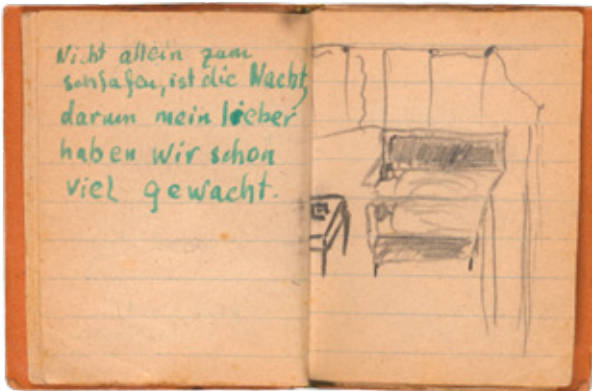 Nicht allein zum
schlafen, ist die Nacht,
darum mein lieber
haben wir schon
viel gewacht.